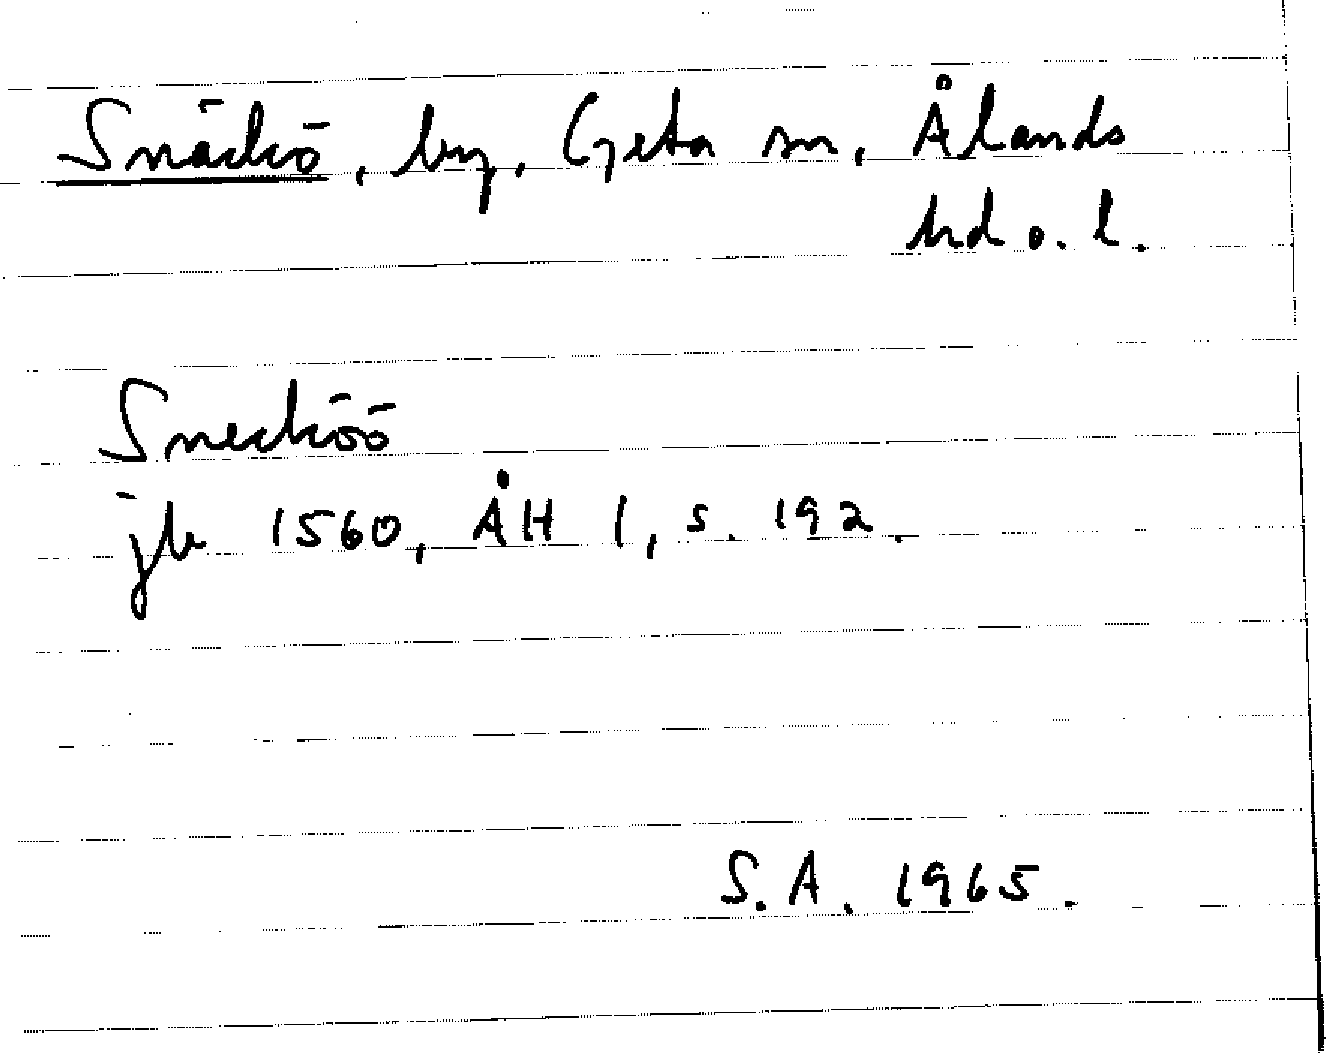 Snäckö, by, Geta sn, Ålands
hd o. l.
Snecköö
jb 1560, ÅH 1, s. 192.
S.A. 1965.